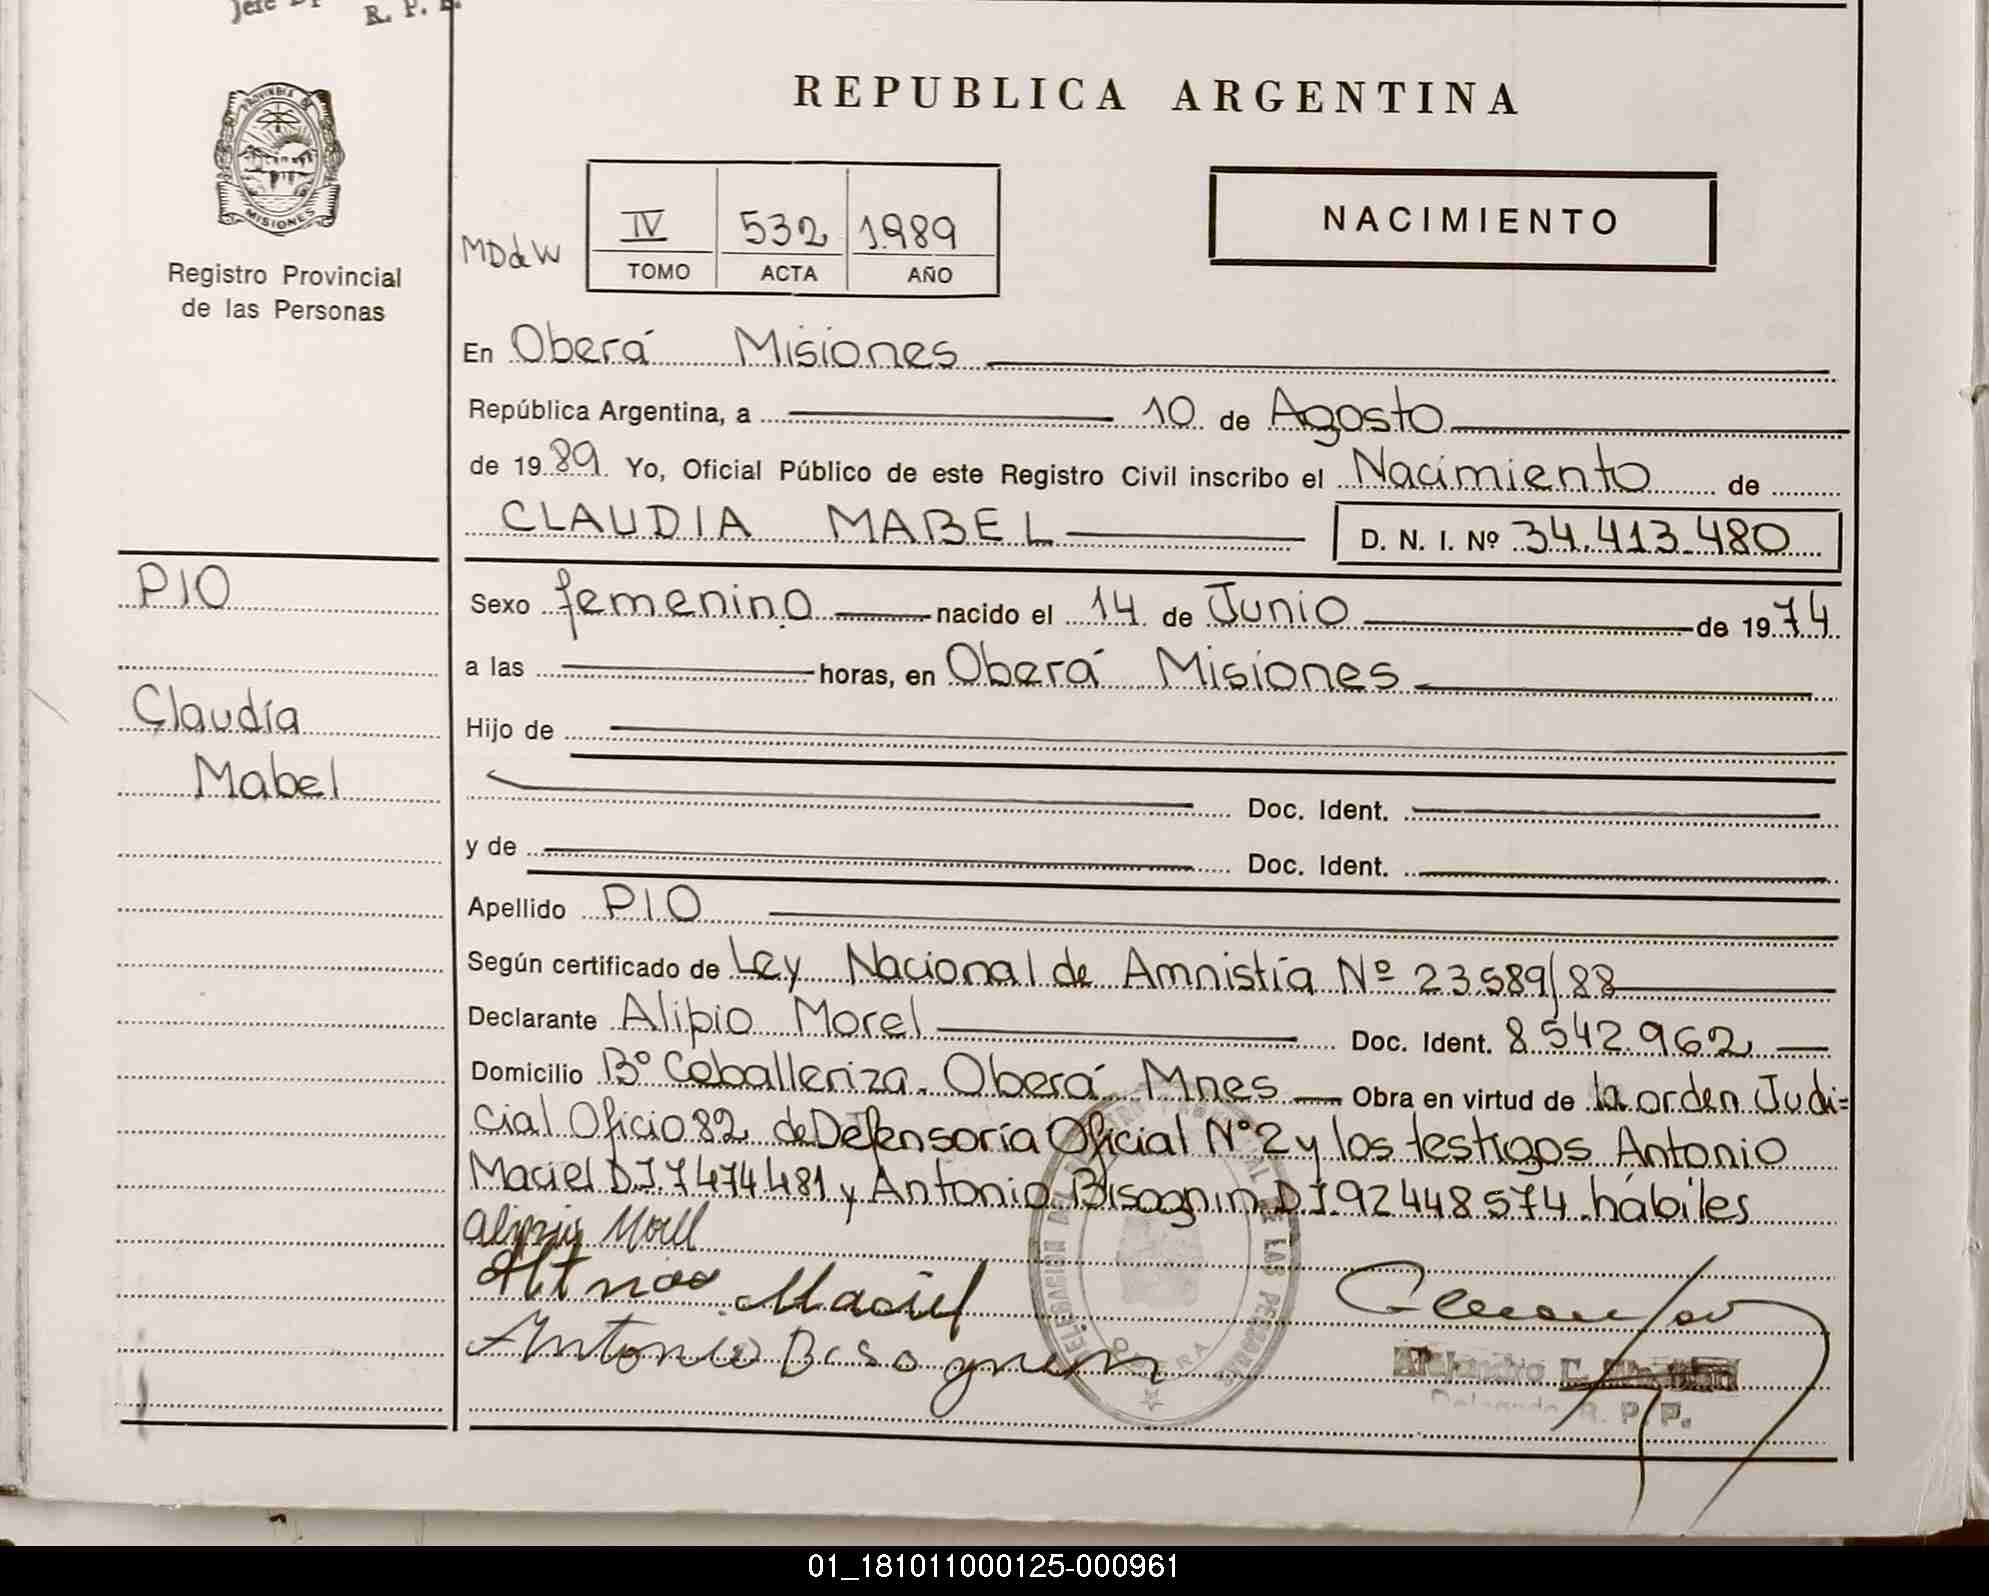 R. P. P.
PROVINCIA DE
MISIONES
Registro Provincial
de las Personas
REPUBLICA ARGENTINA
NACIMIENTO
MDdW
IV 532 1989
TOMO ACTA AÑO
En Oberá Misiones
República Argentina, a 10 de Agosto
de 1989 Yo, Oficial Público de este Registro Civil inscribo el Nacimiento de
CLAUDIA MABEL D. N. I. Nº 34.413.480
PIO
Claudia
Mabel
Sexo femenino nacido el 14 de Junio de 1974
a las horas, en Oberá Misiones
Hijo de
Doc. Ident.
y de Doc. Ident.
Apellido PIO
Según certificado de Ley Nacional de Amnistía Nº 23.589/88
Declarante Alipio Morel Doc. Ident. 8.542.962
Domicilio Bº Caballeriza. Oberá Mnes Obra en virtud de la orden Judi=
cial Oficio 82 de Defensoría Oficial Nº 2 y los testigos Antonio
Maciel D.I 7474481 y Antonio Bisognin D I.92448574 hábiles
Maciel
Antonio Bisognin
DELEGACION DEL REGISTRO PROVINCIAL DE LAS PERSONAS
OBERA
Alejandro
Delegado R. P. P.
01_181011000125-000961